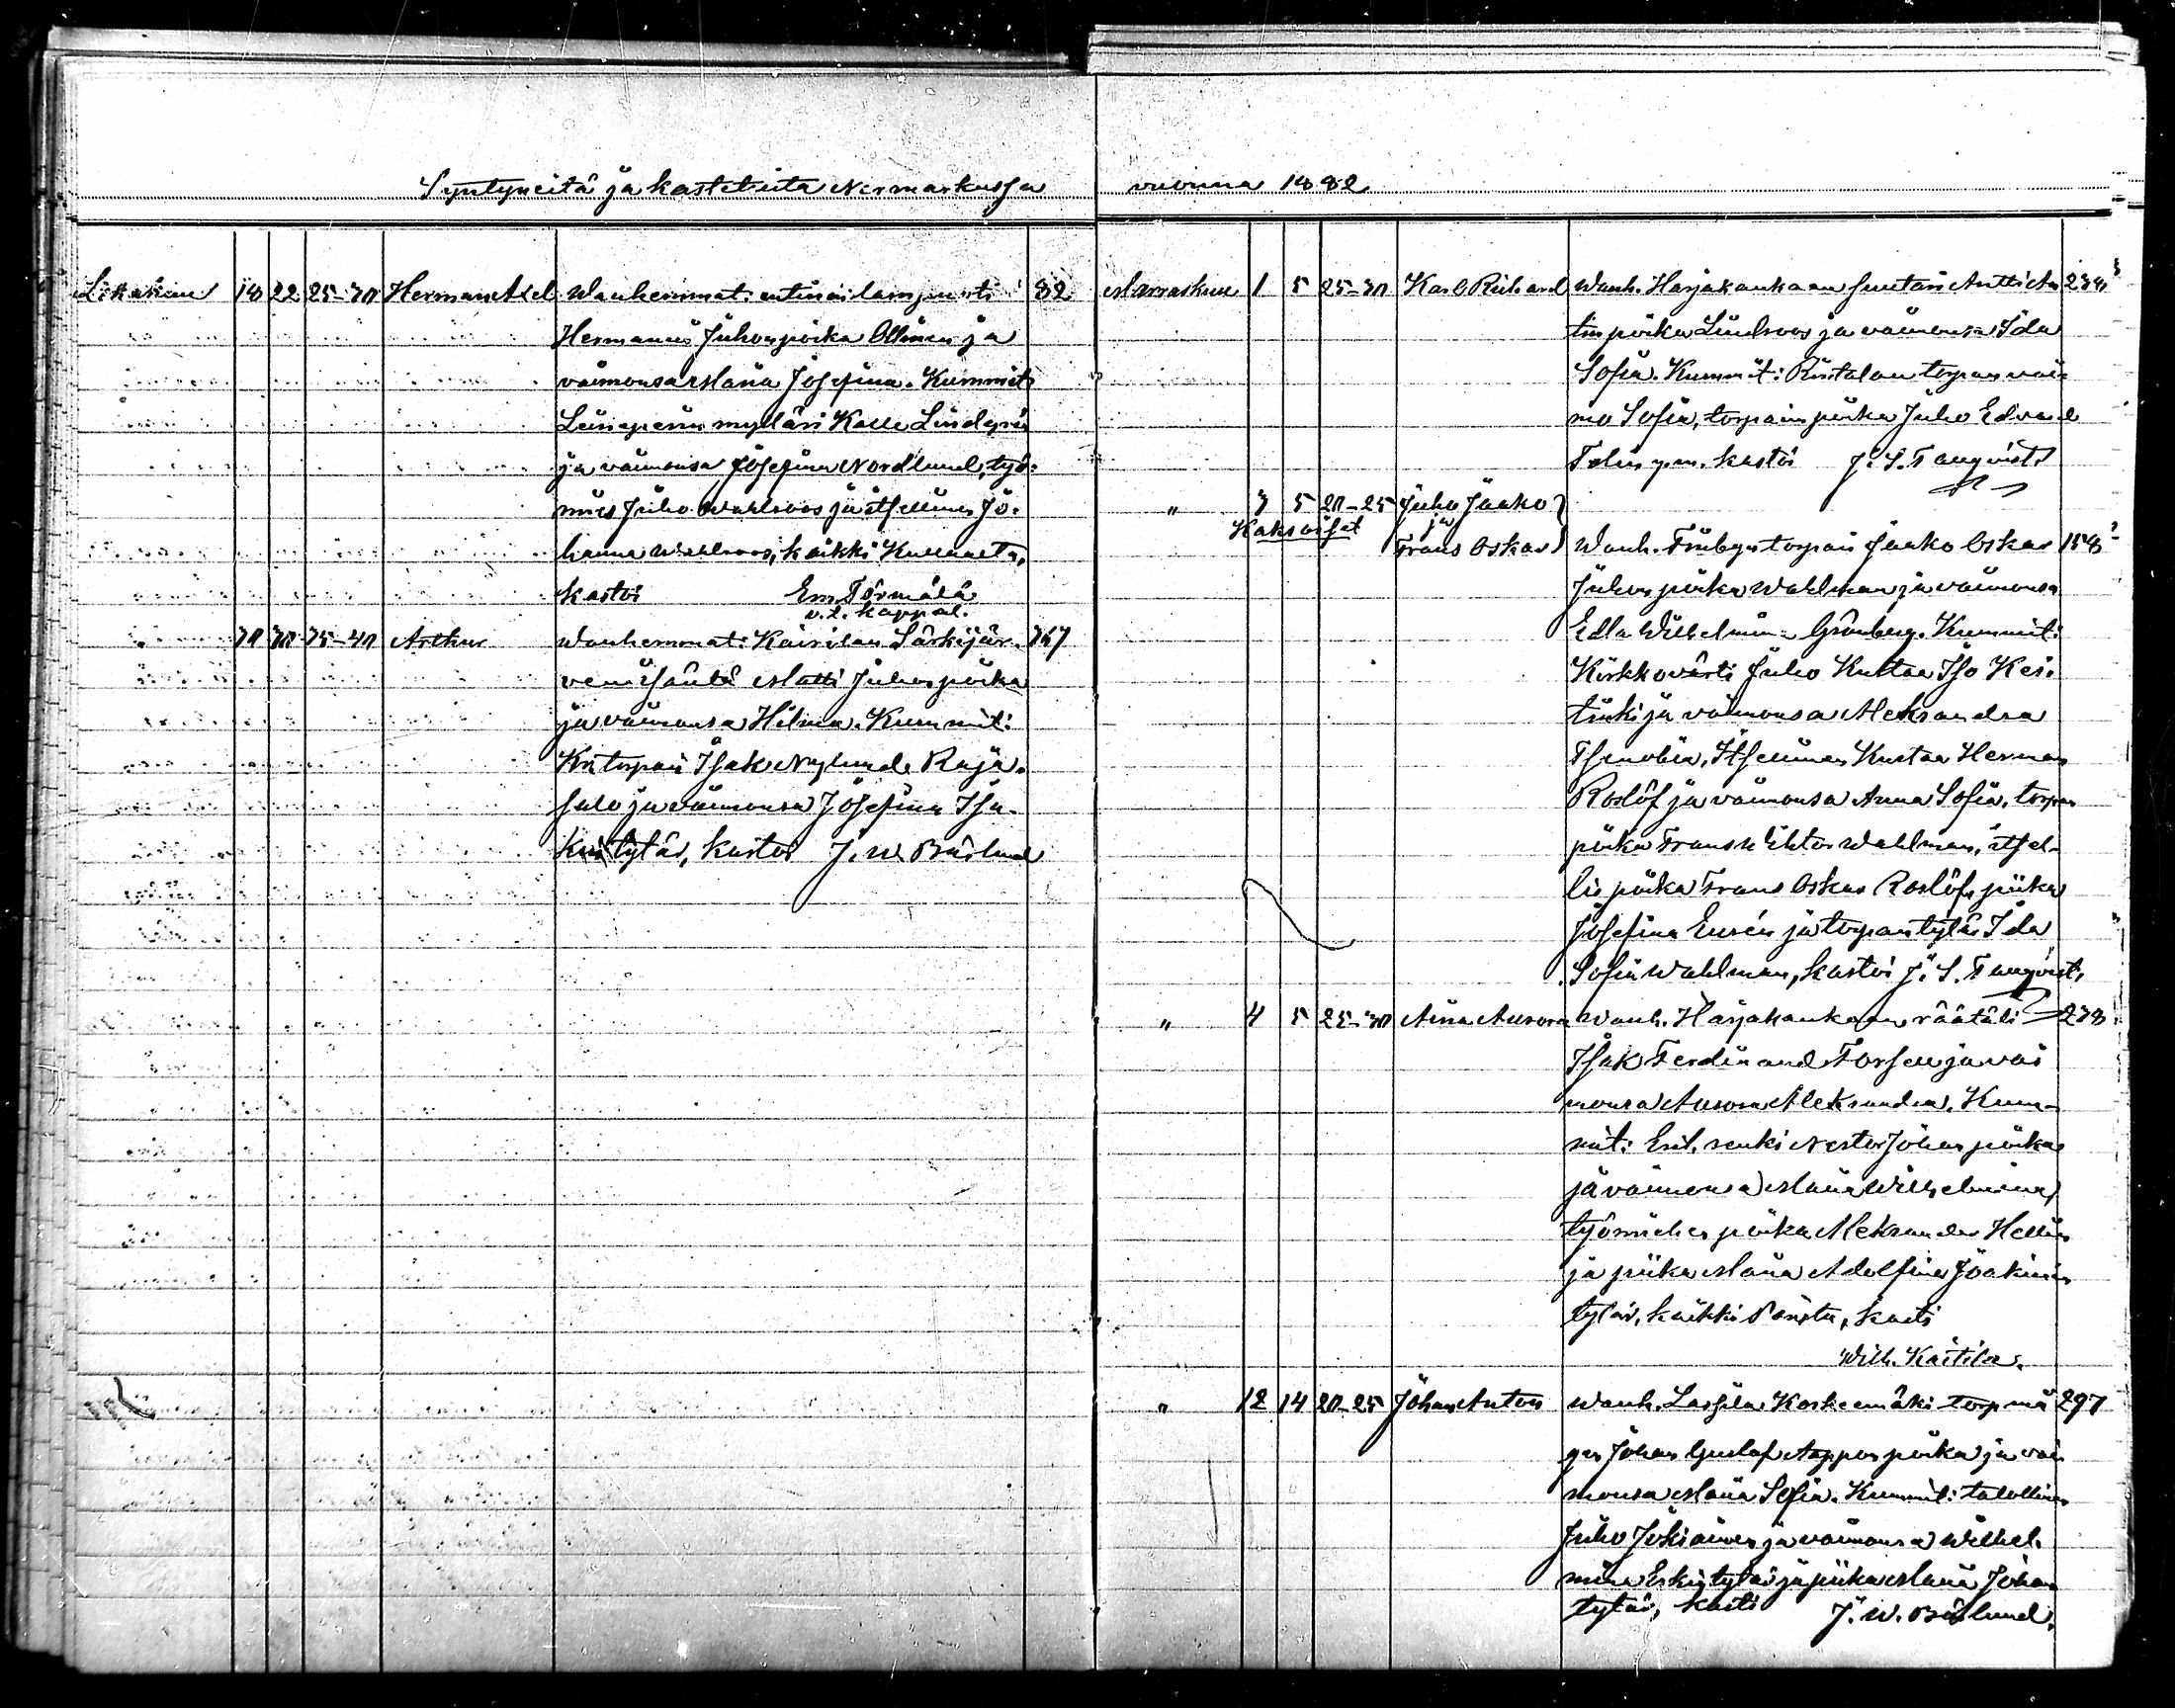 Syntyneitä ja kastetuita Normarkussa
Lokakuu 18 22 25-30 Herman Axel Wanhemmat: entinen lampuoti 82
Hermanni Juhonpoika Ollinen ja
vaimonsa Maria Josefina. Kummit:
mylläri Kalle Lindqvist
ja vaimonsa Josefina Nordlund, työ-
mies Juho Wahlroos ja itsellinen Jo-
hanna Wahlroos, kaikki
kastoi Em. Törmälä
v.t. kappal.
" 30 30 35-40 Arthur Wanhemmat: Kairilan Särkijär- 367
ven isäntä Matti Juhonpoika
ja vaimonsa Hilma. Kummit:
Isak Nylund Raja-
salo ja vaimonsa Josefina Isa-
kintytär, kastoi J. W. Bärlund
vuonna 1882
Marraskuu 1 5 25-30 Karl Richard Wanh. Harjakankaan suutari Antti An- 238
tinpoika Lindroos ja vaimonsa Ida
Sofia. Kummit: Ristalan torpan vai-
mo Sofia, torparin poika Juho Edvard
kastoi J. S. Tangvist
" 3 5 20-25 Juho Jaako
Kaksoiset ja
Frans Oskar Wanh. Finbyn torpari Jaako Oskar 158
Juhonpoika Wahlman ja vaimonsa
Edla Wilhelmina Grönberg. Kummit:
Kirkkovärti Juho Kustaa Iso Kei-
tinki ja vaimonsa Aleksandra
Itsellinen Kustaa Herman
Roslöf ja vaimonsa Anna Sofia, torpan
poika Frans Wihtor Wahlman, itsel-
lis poika Frans Oskar Roslöf, piika
Josefina Eurén ja torpantytär Ida
Sofia Wahlman, kastoi J. S. Tangvist.
" 4 5 25-30 Aina Aurora Wanh. Harjakankaan räätäli 238
Isak Ferdinand Forsen ja vai
monsa Aurora Aleksandra. Kum-
mit: Ent. renki Nestor Johanpoika
ja vaimonsa Maria Wilhelmina,
työmiehen poika Aleksander Hellin
ja piika Maria Adolfina Joakimin
tytär, kaikki Porista, kasti
Wilh. Kaitila.
" 12 14 20-25 Johan Anton Wanh. Lassila Koskeemäki torp mä 297
gen Johan Gustaf Aapponpoika ja vai
monsa Maria Sofia. Kummit: talollinen
Juho Jokiainen ja vaimonsa Wilhel-
mina Erkintytär ja piika Maria Johan
tytär, kasti J. W. Bärlund.